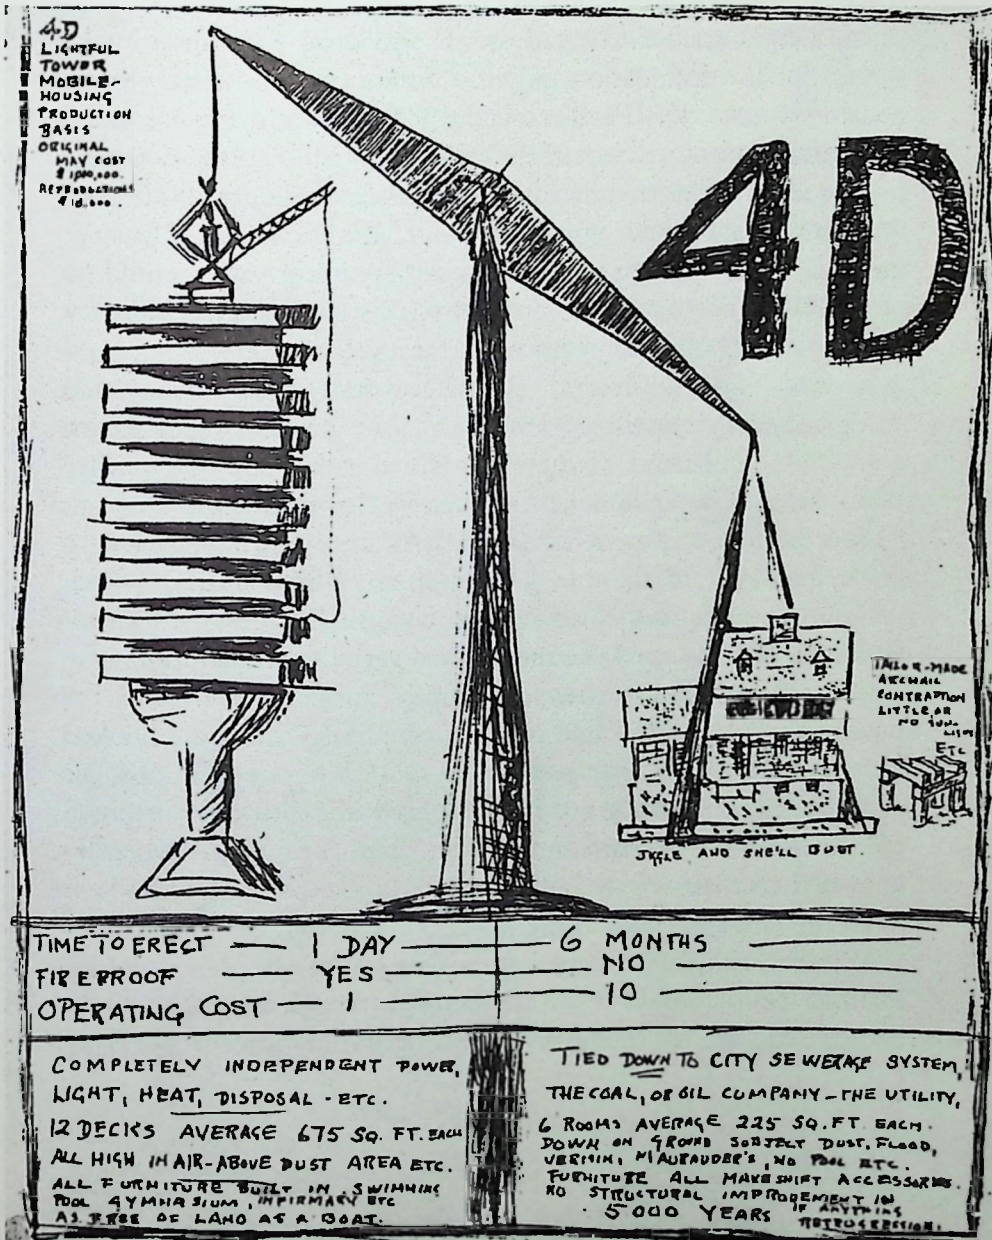 4D
LIGHTFUL
TOWER
MOBILE-
HOUSING
PRODUCTION
BASIS
ORIGINAL
MAY COST
$1,000,000.
REPRODUCTIONS
4D
TAILOR-MADE
ARCHAIC
CONTRAPTION
LITTLE OR
NO SUN-
LIGHT
ETC
JIGGLE AND SHE'LL BUST.
TIME TO ERECT — 1 DAY — 6 MONTHS
FIREPROOF — YES — NO
OPERATING COST — 1 — 10
COMPLETELY INDEPENDENT POWER,
LIGHT, HEAT, DISPOSAL - ETC.
12 DECKS AVERAGE 675 SQ. FT. EACH
ALL HIGH IN AIR-ABOVE DUST AREA ETC.
ALL FURNITURE BUILT IN SWIMMING
POOL GYMNASIUM, INFIRMARY ETC
AS FREE OF LAND AS A BOAT.
TIED DOWN TO CITY SEWERAGE SYSTEM,
THE COAL, OR OIL COMPANY - THE UTILITY,
6 ROOMS AVERAGE 225 SQ. FT EACH.
DOWN ON GROUND SUBJECT DUST, FLOOD,
VERMIN, MAURAUDER'S, NO POOL ETC.
FURNITURE ALL MAKESHIFT ACCESSORIES.
NO STRUCTURAL IMPROVEMENT IN
5000 YEARS IF ANYTHING
RETROGRESSION.